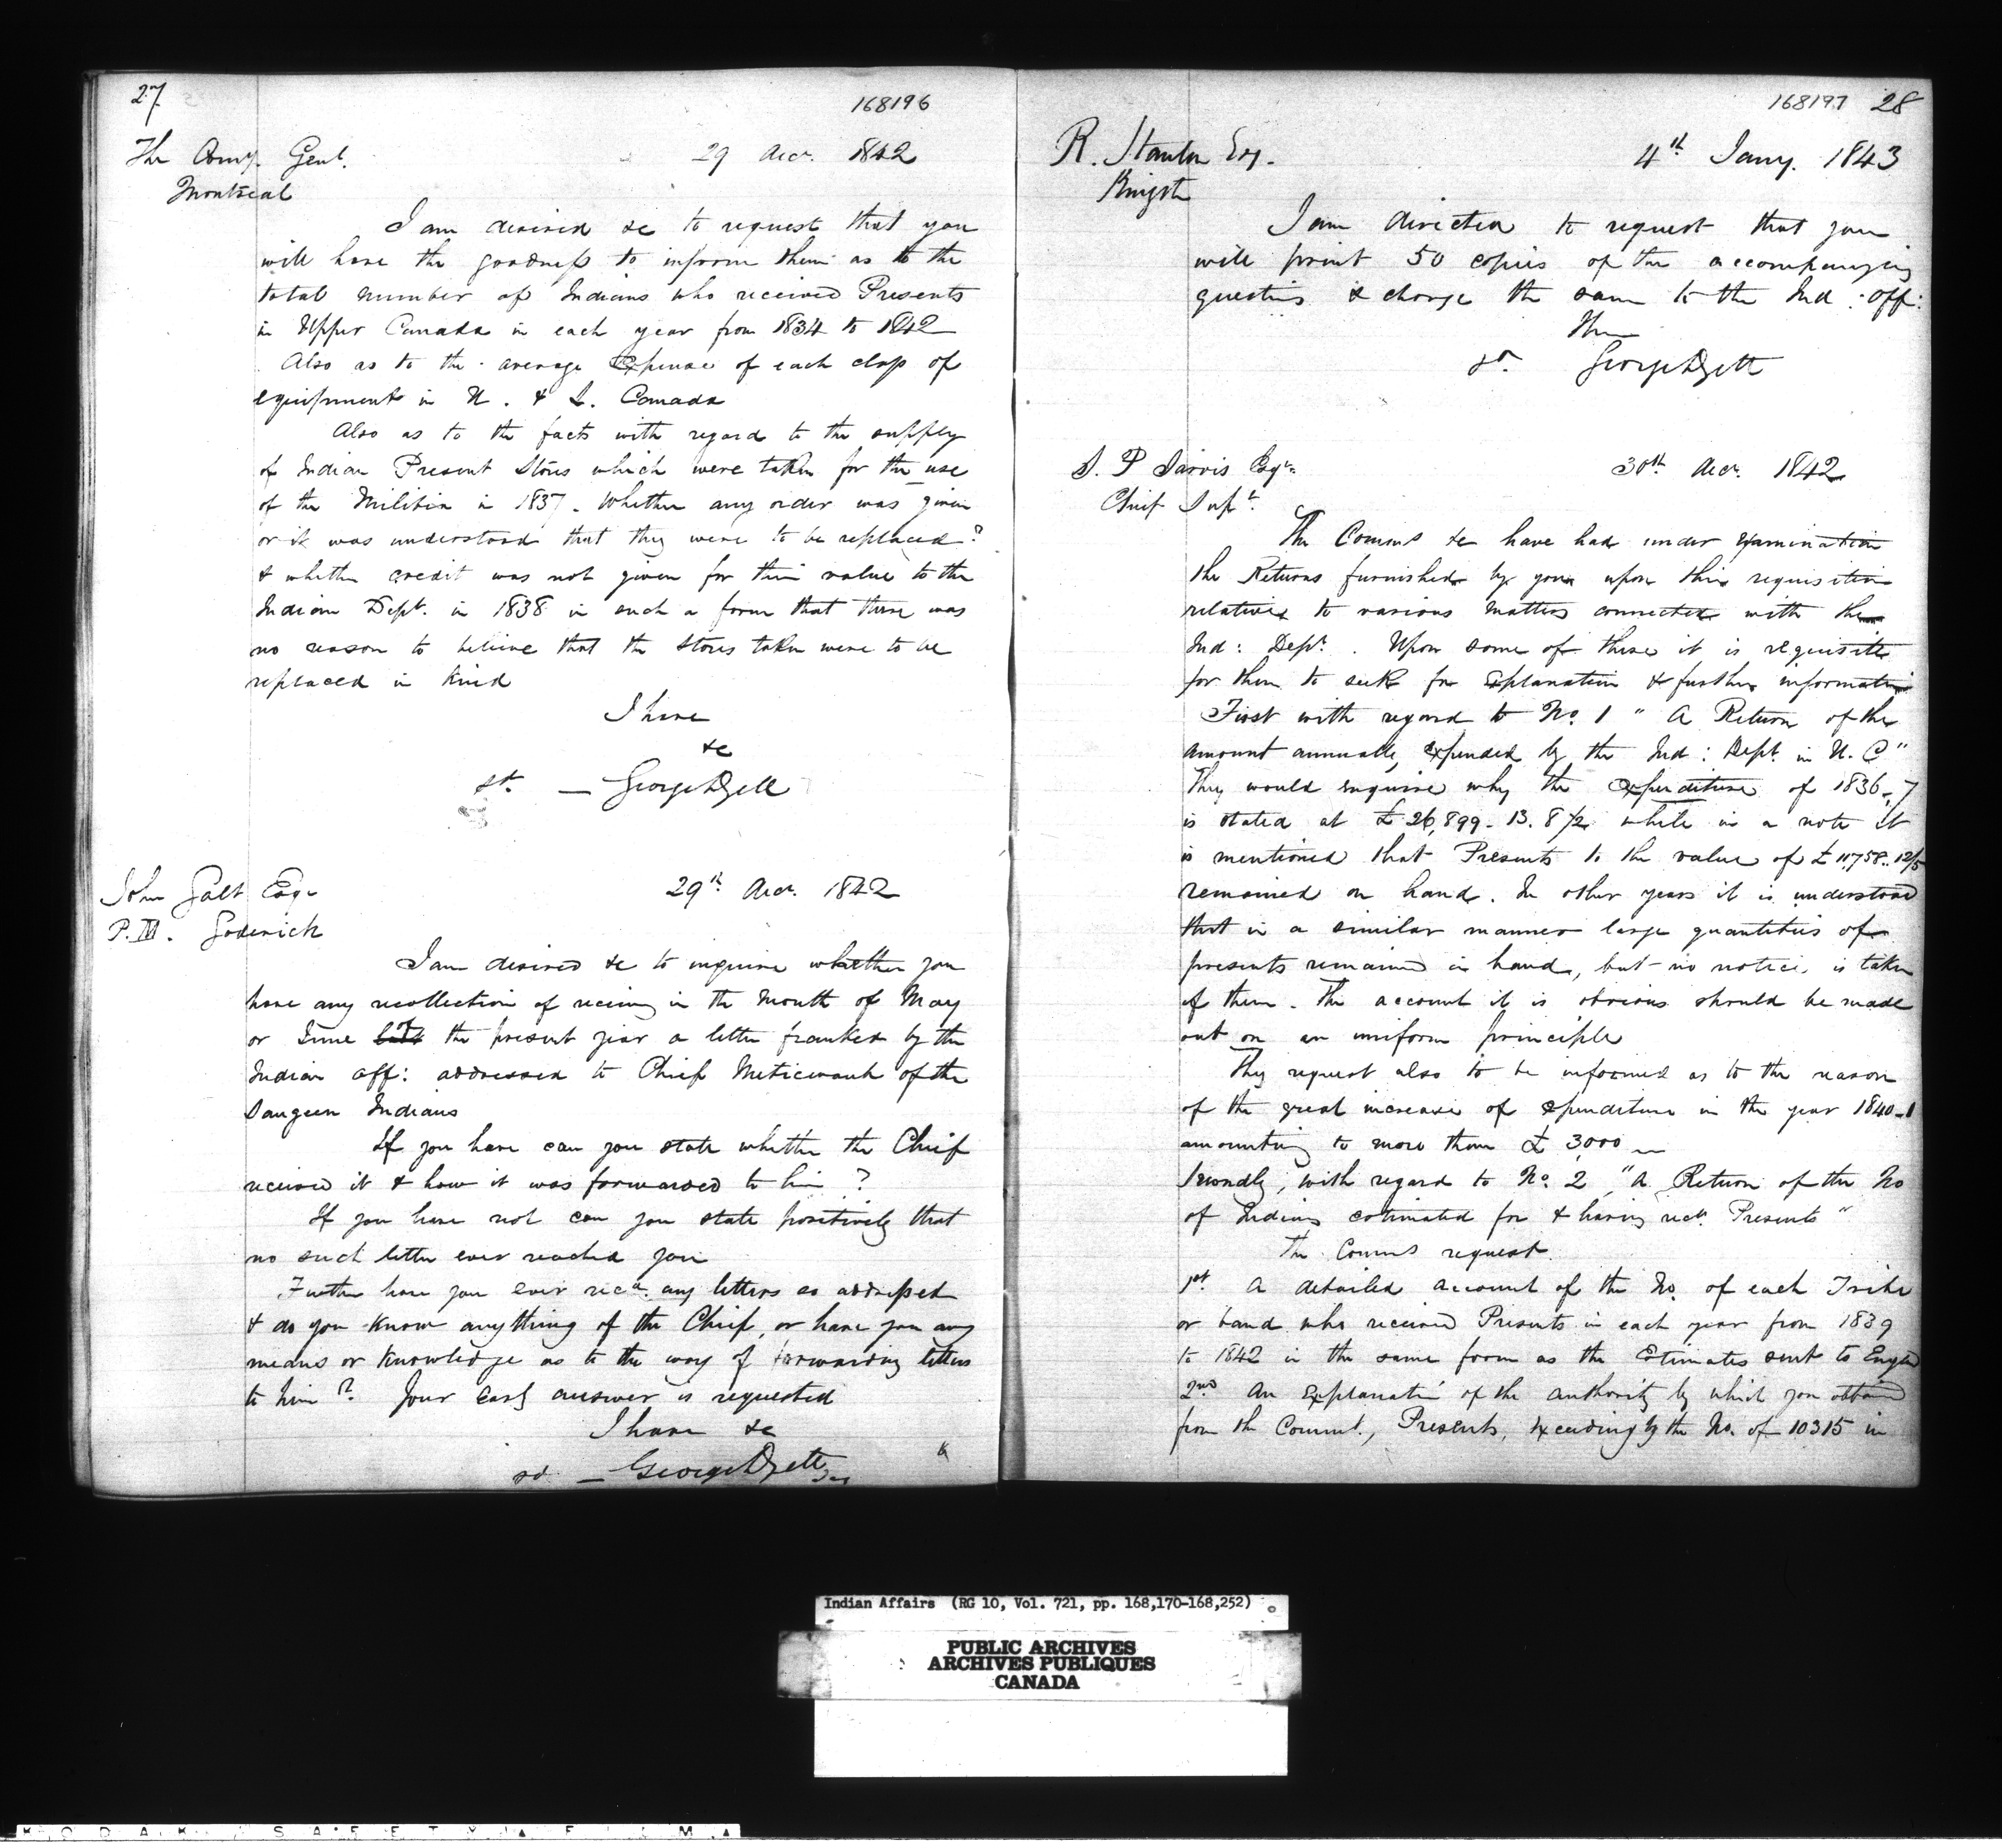 27
168196
The Comy. Genl. 29 Decr. 1842
Montreal
I am desired &c to request that you
will have the goodness to inform them as to the
total number of Indians who received Presents
in Upper Canada in each year from 1834 to 1842
Also as to the average Expense of each class of
equipment in U. & L. Canada
Also as to the facts with regard to the supply
of Indian Present Stores which were taken for the use
of the Militia in 1837. Whether any order was given
or it was understood that they were to be replaced?
& whether credit was not given for their value to the
Indian Dept. in 1838 in such a form that there was
no reason to believe that the stores taken were to be
replaced in kind
I have
&c
sd. — George
John Galt Esqr 29th Decr. 1842
P.M. Goderich
I am desired &c to inquire whether you
have any recollection of receiving in the Month of May
or June last the present year a letter franked by the
Indian Off: addressed to Chief Meticwauk of the
Saugeen Indians
If you have can you state whether the Chief
received it & how it was forwarded to him ?
If you have not can you state positively that
no such letter ever reached you
Further have you ever recd. any letters so addressed
& do you know anything of the Chief, or have you any
means or knowledge as to the way of forwarding letters
to him ? Your early answer is requested
I have &c
sd. — George
168197 28
R. Stanton Esq. 4th Jany. 1843
Kingston
I am directed to request that you
will print 50 copies of the accompanying
questions & charge the same to the Ind : Off:
sd. George
S. P Jarvis Esqr. 30th Decr. 1842
Chief Supt.
The Comms &c have had under examination
the Returns furnished by you upon their requisition
relative to various matters connected with the
Ind : Dept. . Upon some of these it is requisite
for them to seek for Explanation & further information
First with regard to No. 1 " A Return of the
amount annually expended by the Ind : Dept. in U. C"
They would enquire why the expenditure of 1836-7
is stated at £ 26,899 - 13. 8 1/2 while in a note it
is mentioned that Presents to the value of £ 11,758..12/5
remained on hand. In other years it is understood
that in a similar manner large quantities of
presents remained in hand, but no notice is taken
of them. The account it is obvious should be made
out on an uniform principle
They request also to be informed as to the reason
of the great increase of expenditure in the year 1840-1
amounting to more than £ 3,000
Secondly, with regard to No. 2 "A Return of the No
of Indians estimated for & having recd. Presents "
The Comms request
1st A detailed account of the No. of each Tribe
or band who received Presents in each year from 1839
to 1842 in the same form as the Estimates sent to Engld
2nd An Explanatn of the authority by which you obtained
from the Commt., Presents, exceeding by the No. of 10315 in
Indian Affairs (RG 10, Vol. 721, pp. 168,170-168,252)
PUBLIC ARCHIVES
ARCHIVES PUBLIQUES
CANADA
KODAK SAFETY FILM